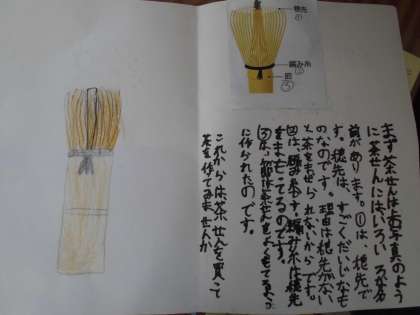 穂先
①
編み糸
②
節
③
まず茶せんは右写真のよう
に茶せんにはいろいろな名
前があります。①は、穂先で
す。穂先は、すごくだいじなも
のなのです。理由は穂先がない
と茶をまぜられないからです。
②は、編み糸です。編み糸は穂先
をまもってるのです。
③は、節
に作られたのです。
これからは茶せんを買って
茶を作てみませんか